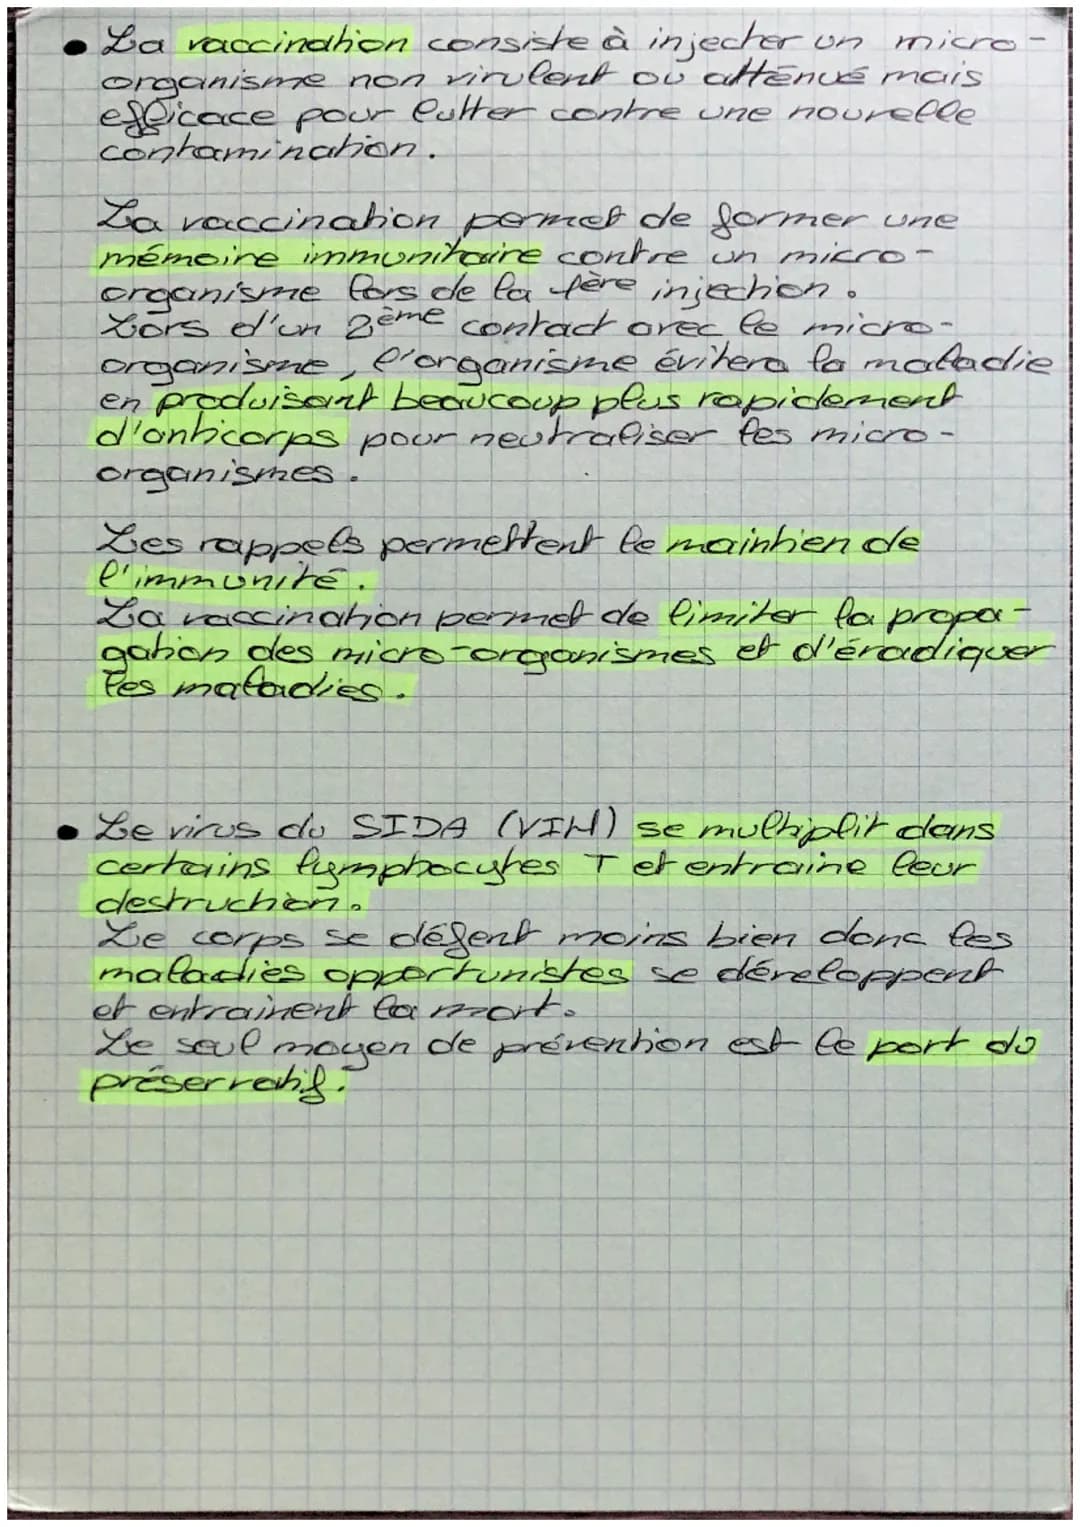 • La vaccination consiste à injecter un micro-
organisme non virulent ou atténué mais
efficace pour lutter contre une nouvelle
contamination.
La vaccination permet de former une
mémoire immunitaire contre un micro-
organisme lors de la 1ère injection.
Lors d'un 2ème contact avec le micro-
organisme, l'organisme évitera la maladie
en produisant beaucoup plus rapidement
d'anticorps pour neutraliser les micro-
organismes.
Les rappels permettent le maintien de
l'immunité.
La vaccination permet de limiter la propa-
gation des micro-organismes et d'éradiquer
les maladies.
• Le virus du SIDA (VIH) se multiplit dans
certains lymphocytes T et entraine leur
destruction.
Le corps se défent moins bien donc les
maladies opportunistes se développent
et entrainent la mort.
Le seul moyen de prévention est le port du
préservatif.